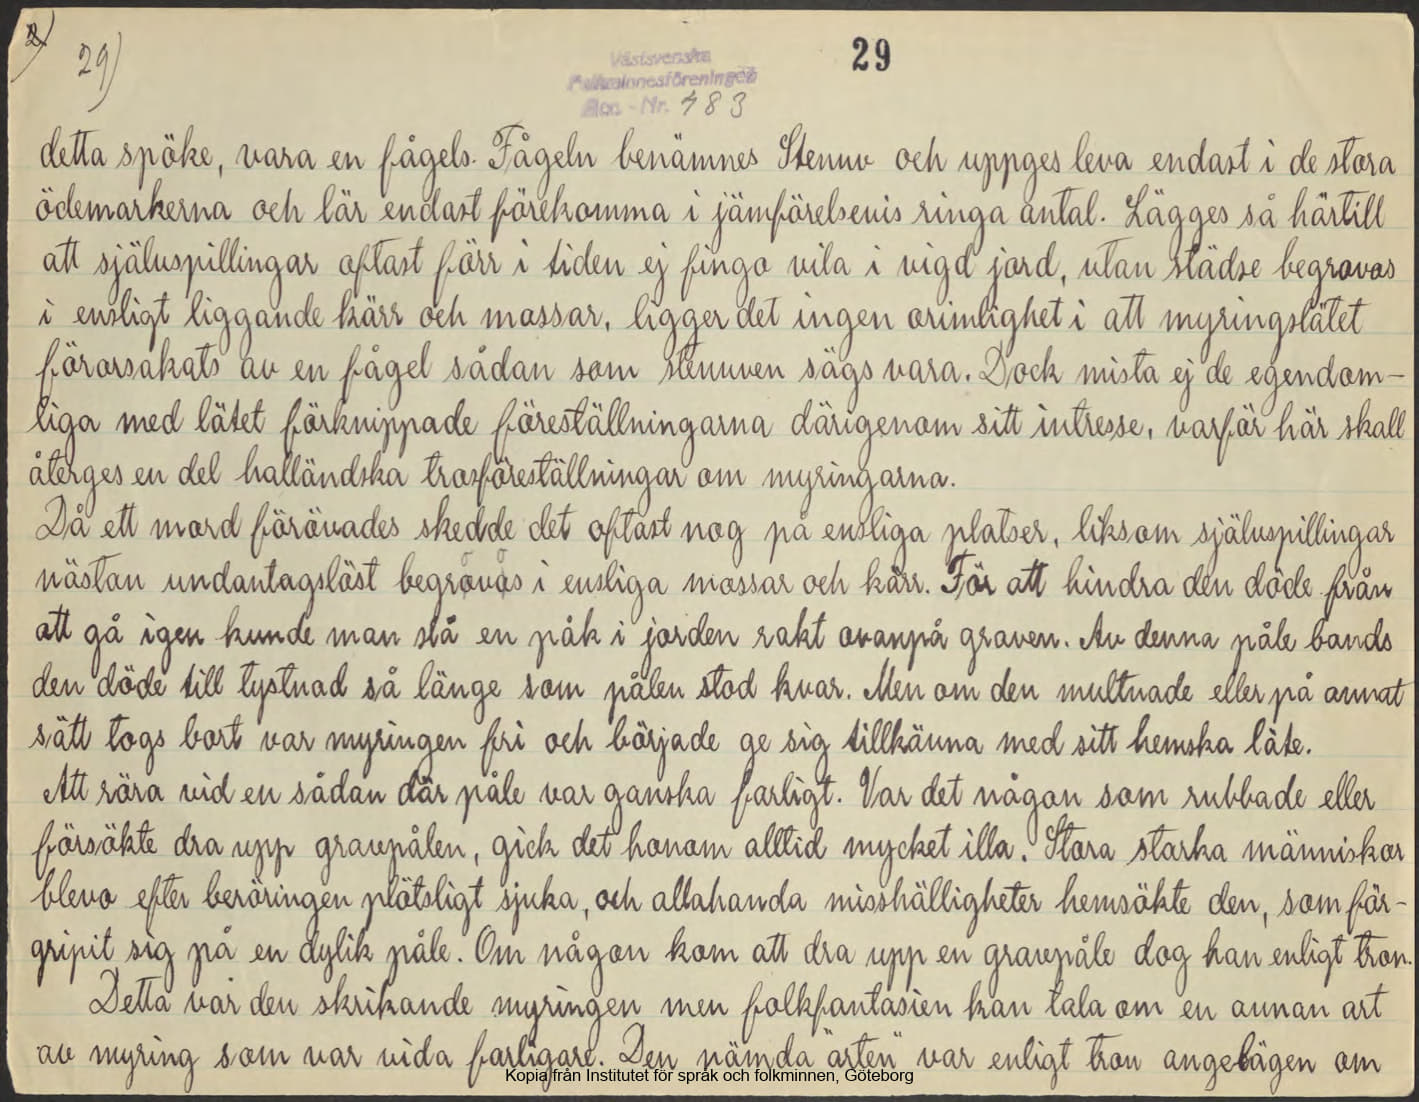 2)
29)
29
Västsvenska
Folkminnesföreningen
Acc. - Nr. 483
detta spöke, vara en fågels. Fågeln benämnes Stenuv och uppges leva endast i de stora
ödemarkerna och lär endast förekomma i jämförelsevis ringa antal. Lägges så härtill
att själuspillingar oftast förr i tiden ej fingo vila i vigd jord, utan städse begravas
i ensligt liggande kärr och mossar, ligger det ingen orimlighet i att myringslätet
förorsakats av en fågel sådan som stenuven sägs vara. Dock mista ej de egendom-
liga med lätet förknippade föreställningarna därigenom sitt intresse, varför här skall
återges en del halländska trosföreställningar om myringarna.
Då ett mord förövades skedde det oftast nog på ensliga platser, liksom själuspillingar
nästan undantagslöst begrovos i ensliga mossar och kärr. För att hindra den döde från
att gå igen kunde man slå en påk i jorden rakt ovanpå graven. Av denna påle bands
den döde till tystnad så länge som pålen stod kvar. Men om den multnade eller på annat
sätt togs bort var myringen fri och började ge sig tillkänna med sitt hemska läte.
Att röra vid en sådan där påle var ganska farligt. Var det någon som rubbade eller
försökte dra upp gravpålen, gick det honom alltid mycket illa. Stora starka människor
blevo efter beröringen plötsligt sjuka, och allahanda misshälligheter hemsökte den, som för-
gripit sig på en dylik påle. Om någon kom att dra upp en gravpåle dog han enligt tron.
Detta var den skrikande myringen men folkfantasien kan tala om en annan art
av myring som var vida farligare. Den nämda "arten" var enligt tron angelägen om
Kopia från Institutet för språk och folkminnen, Göteborg